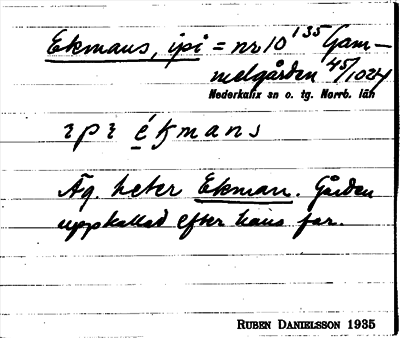 Ekmans, ipi = nr 10 135 Gam-
melgården 45/1024
Nederkalix sn o. tg. Norrb. län
ɩpɩ ékmans
Äg. heter Ekman. Gården
uppkallad efter hans far.
RUBEN DANIELSSON 1935